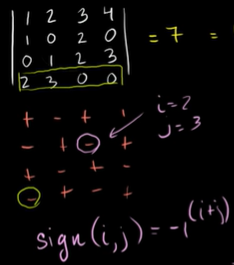 1 2 3 4
1 0 2 0 = 7 =
0 1 2 3
2 3 0 0
+ - + -
- + - + i=2
j=3
+ - + -
- + - +
sign(i,j) = -1^(i+j)